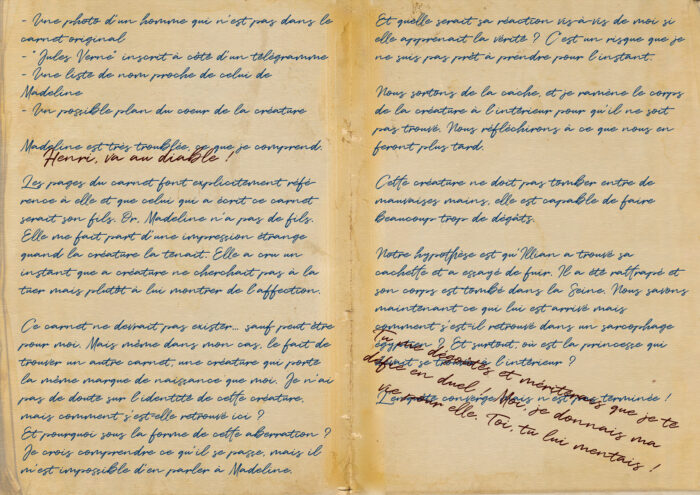 - Une photo d'un homme qui n'est pas dans le
carnet original
- "Jules Verne" inscrit à côté d'un télégramme
- Une liste de nom proche de celui de
Madeline
- Un possible plan du coeur de la créature
Madeline est très troublée, ce que je comprend.
Henri, va au diable !
Les pages du carnet font explicitement réfé-
rence à elle et que celui qui a écrit ce carnet
serait son fils. Or, Madeline n'a pas de fils.
Elle me fait part d'une impression étrange
quand la créature la tenait. Elle a cru un
instant que a créature ne cherchait pas à la
tuer mais plutôt à lui montrer de l'affection.
Ce carnet ne devrait pas exister... sauf peut être
pour moi. Mais même dans mon cas, le fait de
trouver un autre carnet, une créature qui porte
la même marque de naissance que moi. Je n'ai
pas de doute sur l'identité de cette créature,
mais comment s'est-elle retrouvé ici ?
Et pourquoi sous la forme de cette aberration ?
Je crois comprendre ce qu'il se passe, mais il
m'est impossible d'en parler à Madeline.
Et quelle serait sa réaction vis-à-vis de moi si
elle apprenait la vérité ? C'est un risque que je
ne suis pas prêt à prendre pour l'instant.
Nous sortons de la cache, et je ramène le corps
de la créature à l'intérieur pour qu'il ne soit
pas trouvé. Nous réfléchirons à ce que nous en
feront plus tard.
Cette créature ne doit pas tomber entre de
mauvaises mains, elle est capable de faire
beaucoup trop de dégâts.
Notre hypothèse est qu'Illian a trouvé sa
cachette et a essayé de fuir. Il a été rattrapé et
son corps est tombé dans la Seine. Nous savons
maintenant ce qui lui est arrivé mais
comment s'est-il retrouvé dans un sarcophage
égyptien ? Et surtout, où est la princesse qui
était se trouvait à l'intérieur ?
Tu me dégoûtes et mériterais que je te
défie en duel ! Moi, je donnais ma
vie pour elle, Toi, tu lui mentais !
converge. Mais n'est pas terminée !